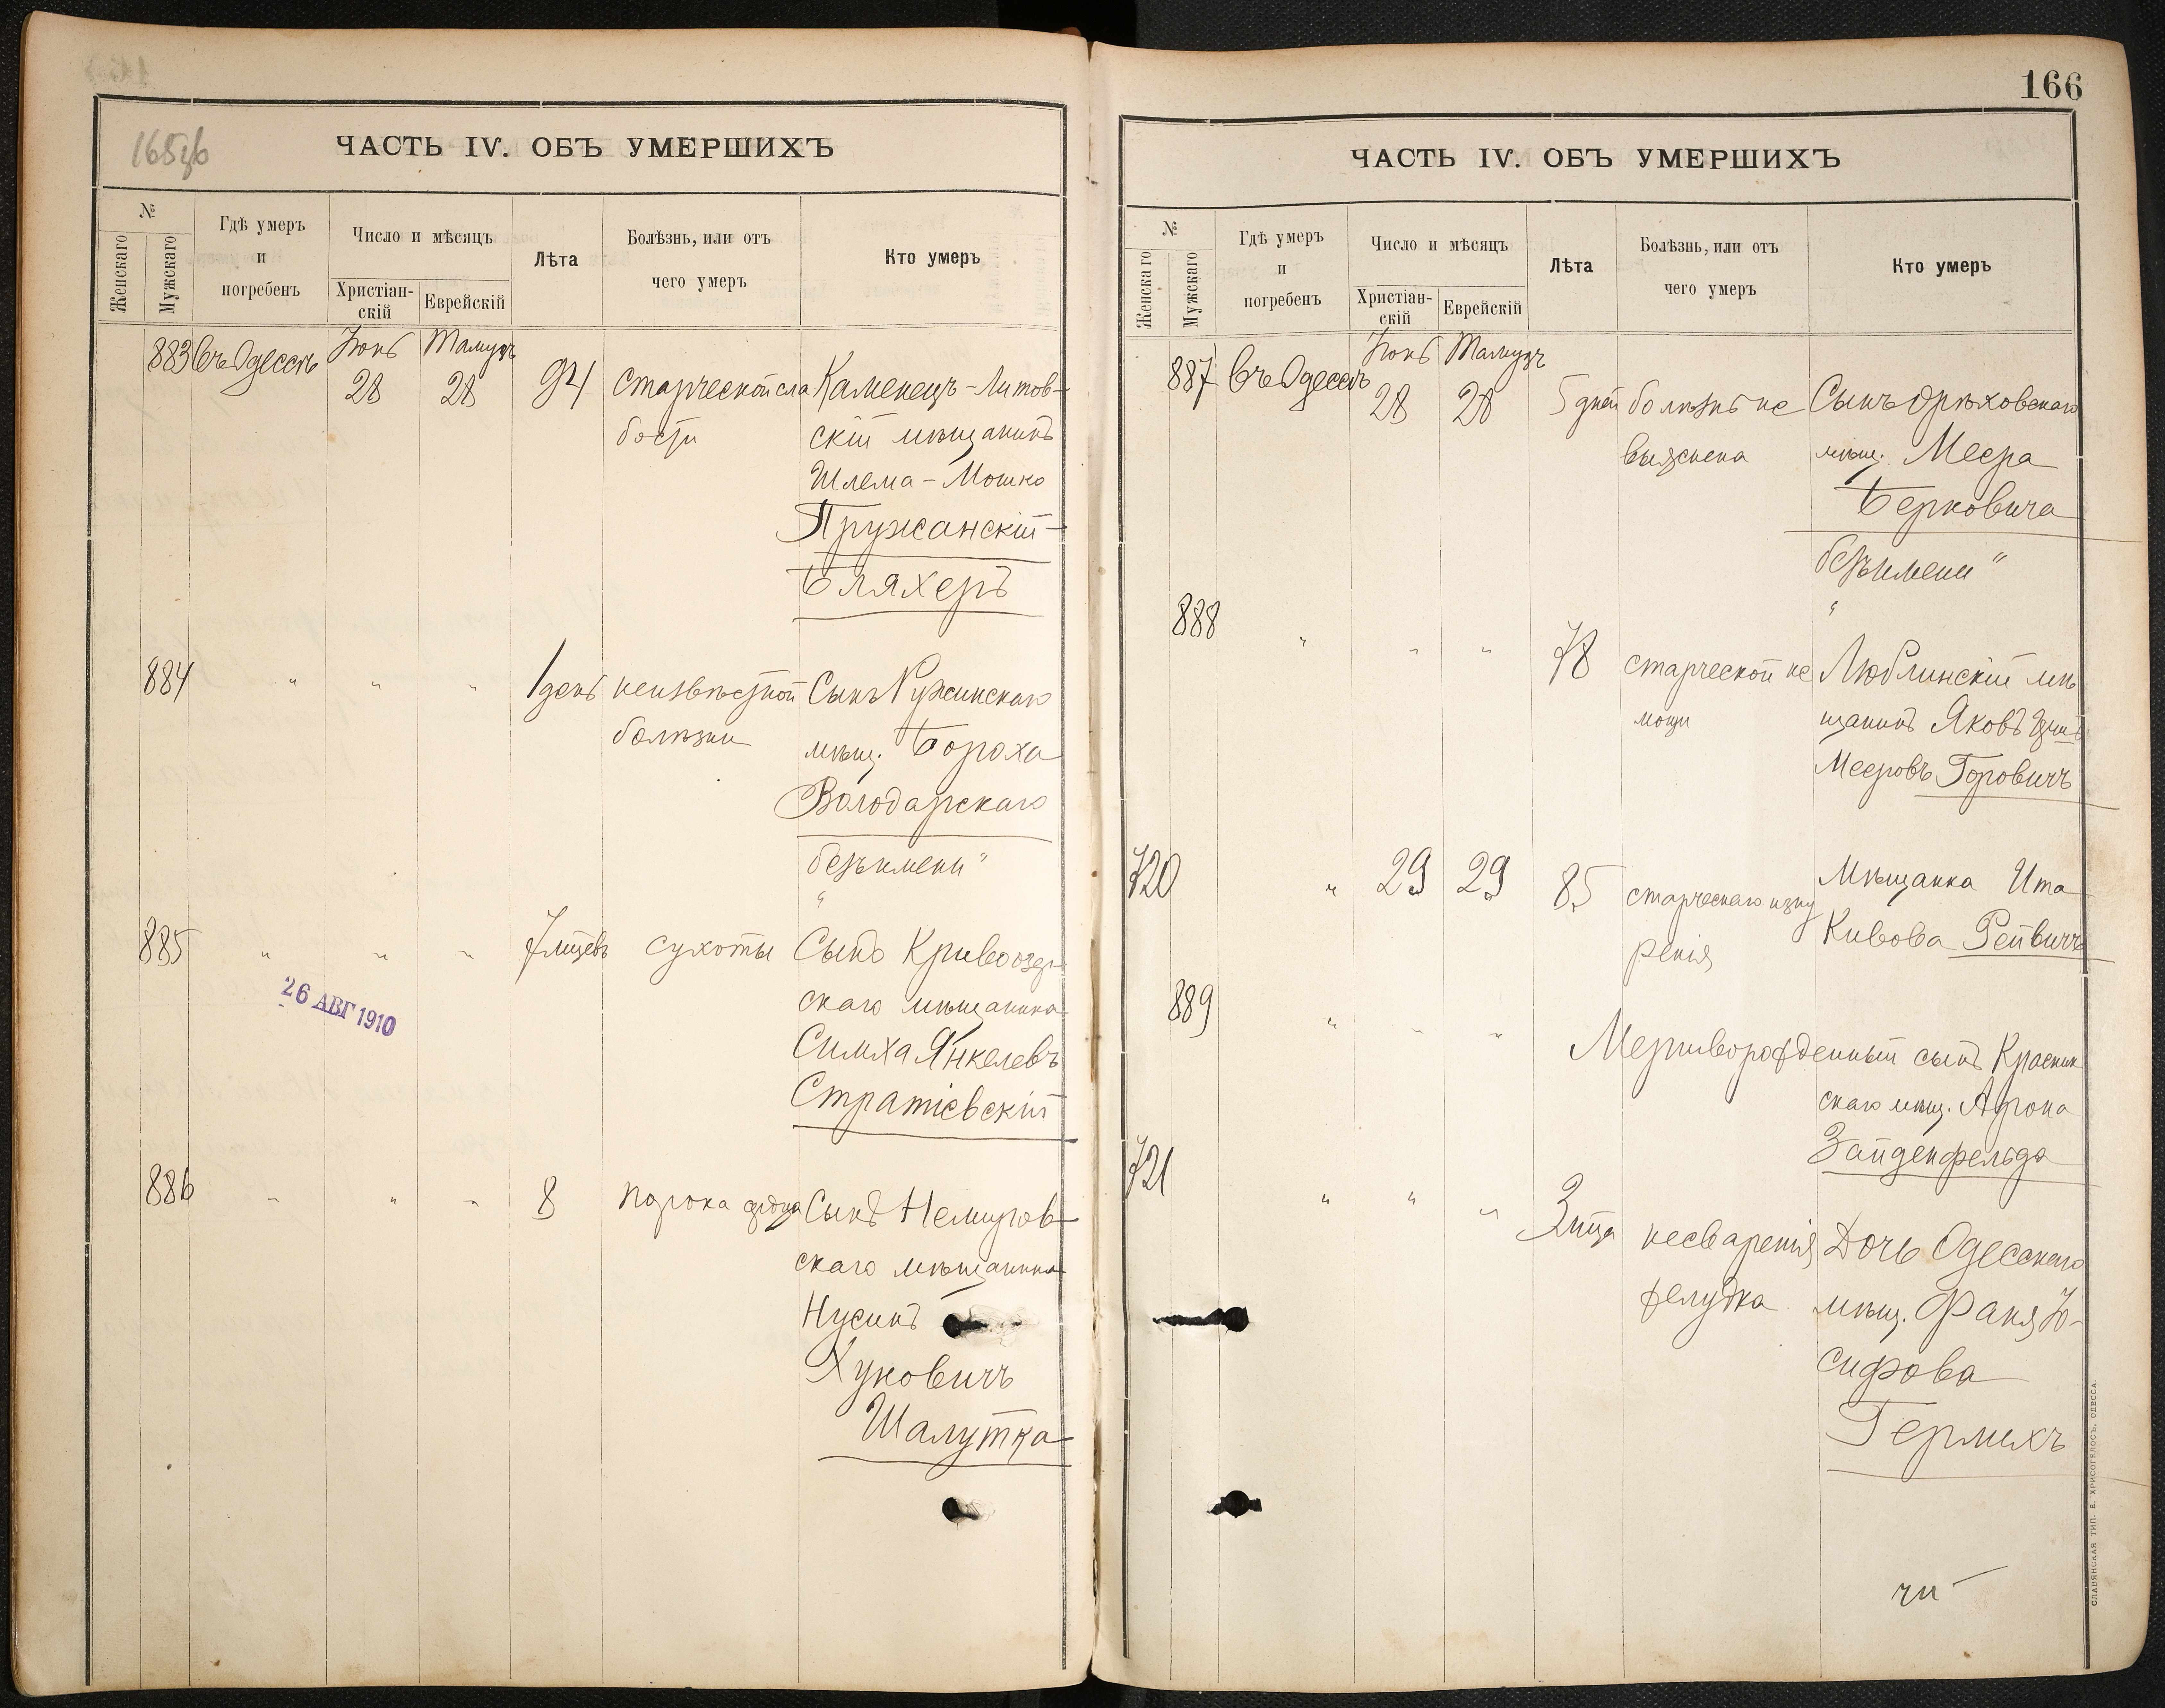 165об
ЧАСТЬ IV. ОБЪ УМЕРШИХЪ
№
Женскаго
Мужскаго
Гдѣ умеръ
и
погребенъ
Число и мѣсяцъ
Христіан-
скій
Еврейскій
Лѣта
Болѣзнь, или отъ
чего умеръ
Кто умеръ
883 Въ Одессѣ Іюнь 28 Тамузъ 28 94 Старческой сла Каменецъ-Литов-
бости скій мѣщанинъ
Шлема-Мошко
Пружанскій-
Бляхеръ
884 " " " 1 день неизвѣстной Сынъ Ружинскаго
болѣзни мѣщ. Бороха
Володарскаго
"безъ имени"
885 " " " 7 мцевъ сухоты Сынъ Кривоозер-
скаго мѣщанина
Симха Янкелевъ
Стратіевскій
26 АВГ 1910
886 " " " 8 порока сердца Сынъ Немиров-
скаго мѣщанина
Нусинъ
Хуновичъ
Шалутка
166
ЧАСТЬ IV. ОБЪ УМЕРШИХЪ
№
Женскаго
Мужскаго
Гдѣ умеръ
и
погребенъ
Число и мѣсяцъ
Христіан-
скій
Еврейскій
Лѣта
Болѣзнь, или отъ
чего умеръ
Кто умеръ
887 Въ Одессѣ Іюнь 28 Тамузъ 28 5 дней болѣзнь не Сынъ Орѣховскаго
выяснена мѣщ. Меера
Берковича
"безъ имени"
888 " " " 78 старческой не Люблинскій мѣ
мощи щанинъ Яковъ
Мееровъ Горовичъ
720 " 29 29 85 старческаго изну Мѣщанка Ита
ренія Кивова Рейвичъ
889 " " " Мертворожденный сынъ Красник
скаго мѣщ. Арона
Зайденфельда
721 " " " 3 мца несваренія Дочь Одесскаго
желудка мѣщ. Фаня Іо-
сифова
Гермихъ
СЛАВЯНСКАЯ ТИП. Е. ХРИСОГЕЛОСЪ. ОДЕССА.